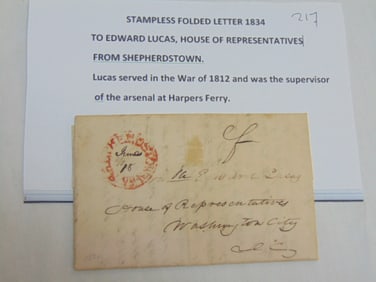 STAMPLESS FOLDED LETTER 1834
217
TO EDWARD LUCAS, HOUSE OF REPRESENTATIVES
FROM SHEPHERDSTOWN.
Lucas served in the War of 1812 and was the supervisor
of the arsenal at Harpers Ferry.
18
House of Representatives
Washington City